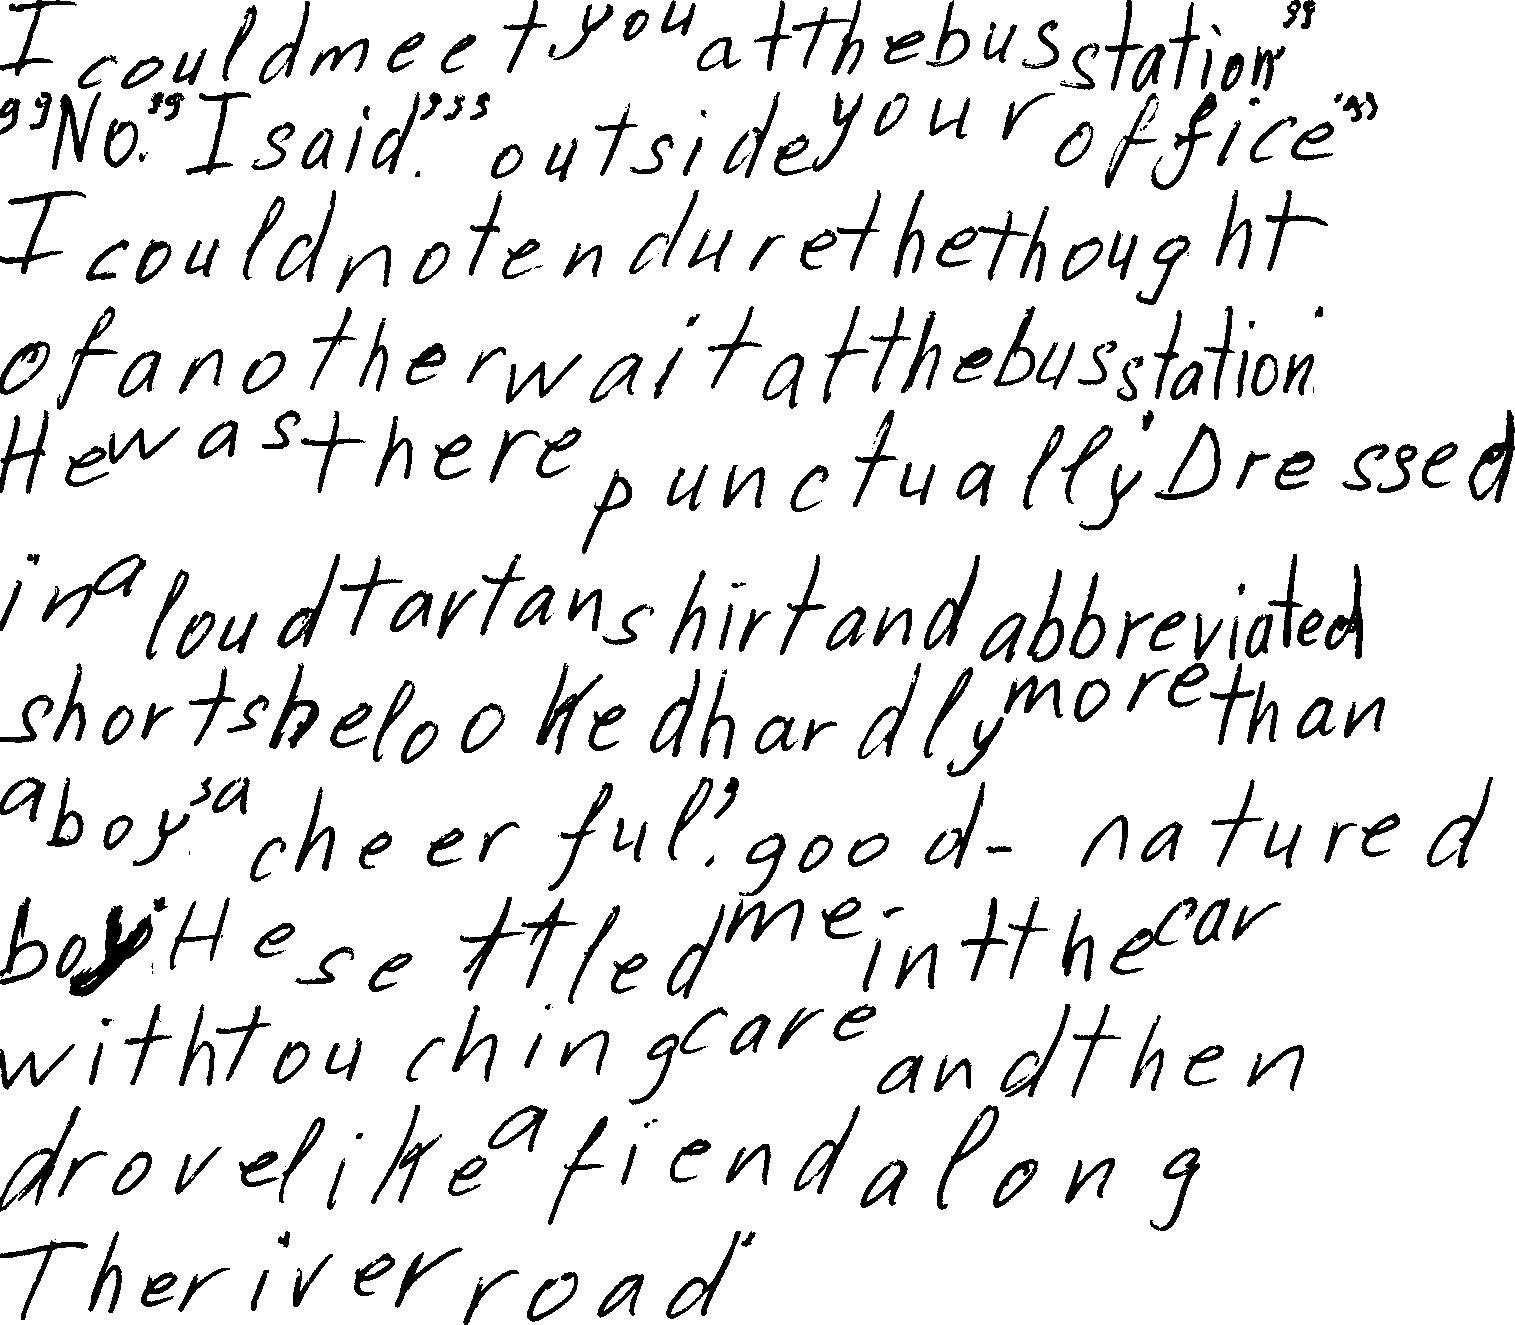 I could meet you at the bus station"
"No." I said." outside your office"
I could not endure the thought
of another wait at the bus station.
He was there punctually. Dressed
in a loud tartan shirt and abbreviated
shorts he looked hardly more than
a boy, a cheerful, good- natured
boy. He settled me in the car
with touching care and then
drove like a fiend along
The river road.